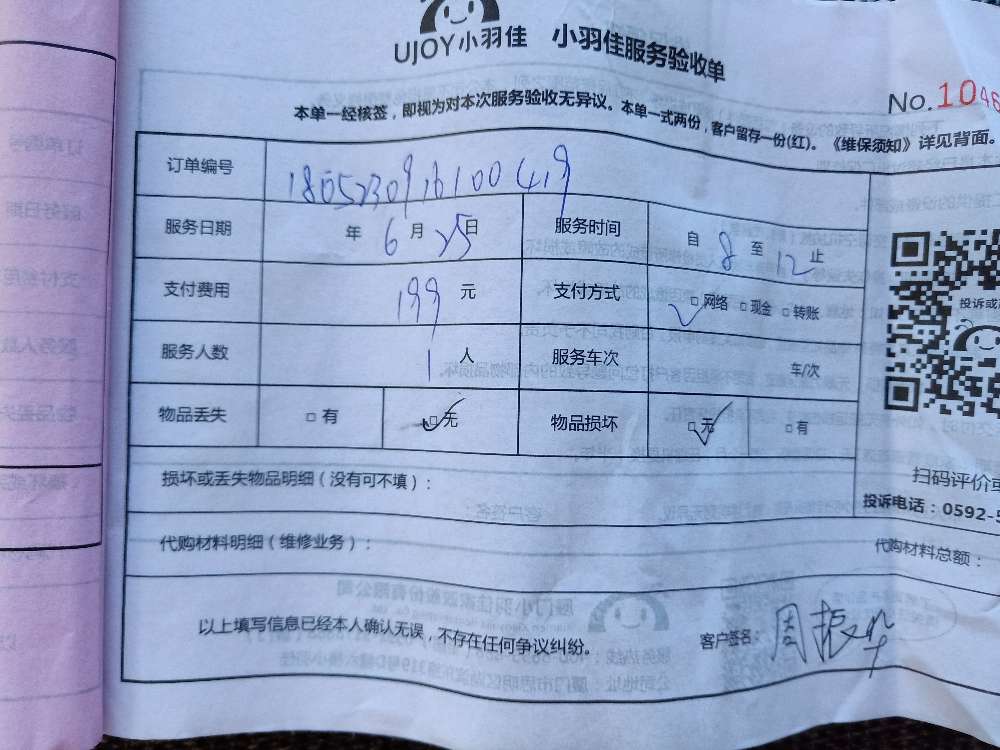 UJOY小羽佳 小羽佳服务验收单
No.1046
本单一经核签，即视为对本次服务验收无异议。本单一式两份，客户留存一份(红)。《维保须知》详见背面。
订单编号 1805230916100419
服务日期 年 6 月 25 日 服务时间 自 8 至 12 止
支付费用 199 元 支付方式 □网络 □现金 □转账
服务人数 1 人 服务车次 车/次
物品丢失 □有 □无 物品损坏 □无 □有
投诉或
损坏或丢失物品明细（没有可不填）：
扫码评价或
投诉电话：0592-5
代购材料明细（维修业务）：
代购材料总额：
以上填写信息已经本人确认无误，不存在任何争议纠纷。
客户签名：周振华